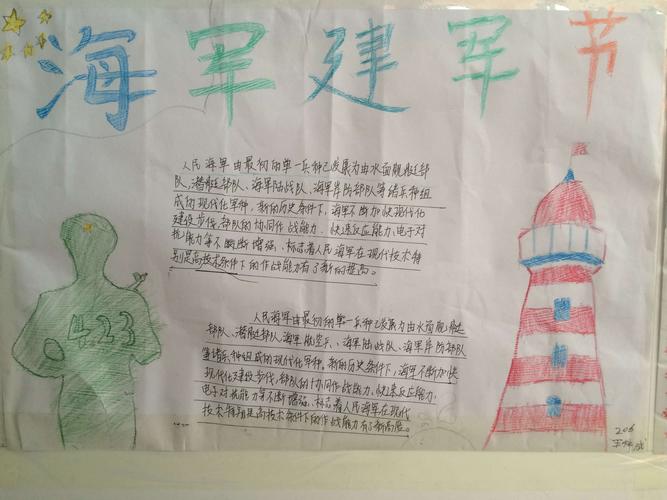 海军建军节
人民海军由最初的单一兵种已发展为由水面舰艇部
队、潜艇部队、海军陆战队、海军岸防部队等诸兵种组
成的现代化军种。新的历史条件下,海军不断加快现代化
建设步伐,部队的协同作战能力、快速反应能力、电子对
抗能力等不断断增强、标志着人民海军在现代技术特
别是高技术条件下的作战能力有了新的提高。
4.23
人民海军由最初的单一兵种已发展为由水面舰艇
部队、潜艇部队海军航空兵、海军陆战队、海军岸防部队
等诸兵种组成的现代化军种。新的历史条件下,海军不断加快
现代化建设步伐,部队的协同作战能力、快速反应能力、
电子对抗能力等不断增强、标志着人民海军在现代
技术特别是高技术条件下的作战能力有了新高度。
206
王